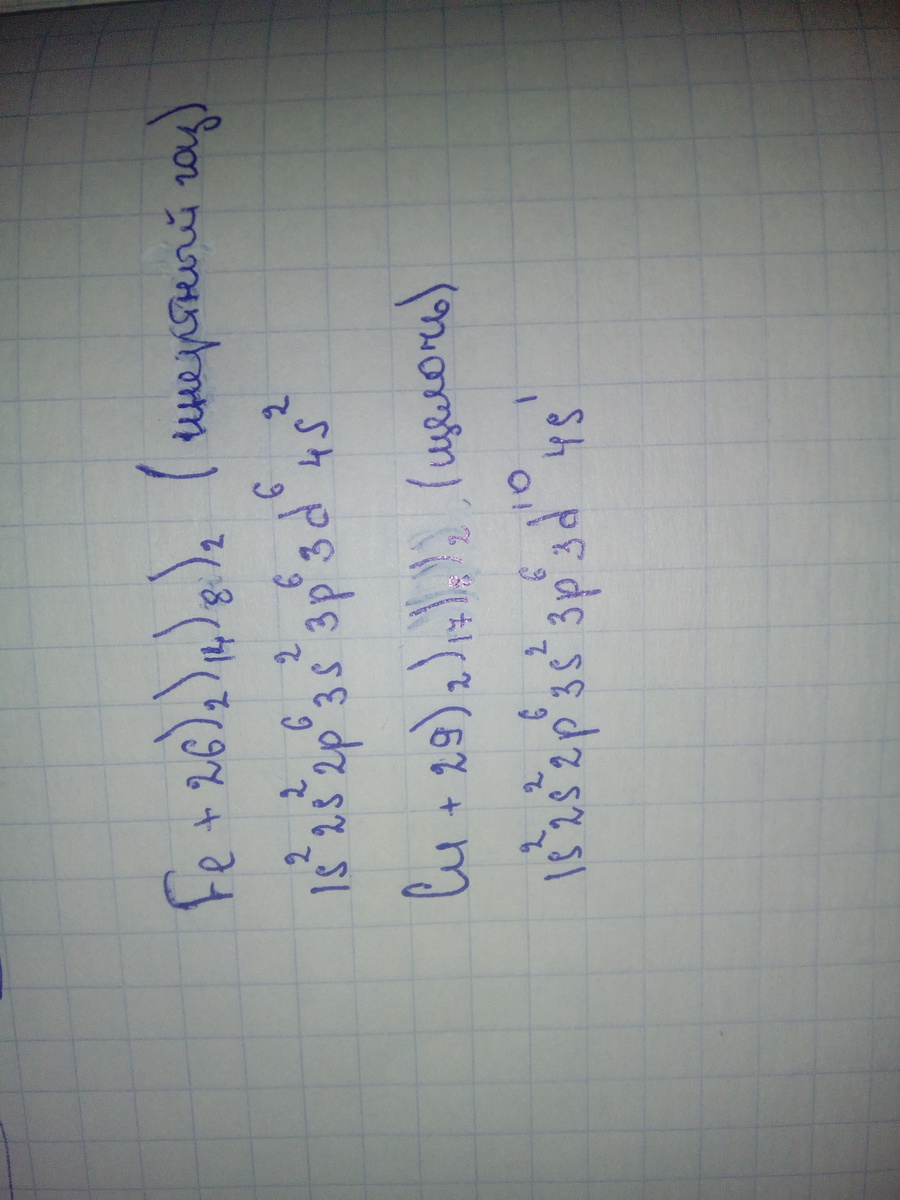 Fe + 26)₂)₁₄)₈)₂ (инертный газ)
1s² 2s² 2p⁶ 3s² 3p⁶ 3d⁶ 4s²
Cu + 29)₂)₁₇)₈)₂ (щелочь)
1s² 2s² 2p⁶ 3s² 3p⁶ 3d¹⁰ 4s¹